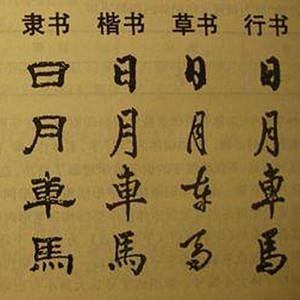 隶书 楷书 草书 行书
日 日 日 日
月 月 月 月
車 車 車 車
馬 馬 馬 馬